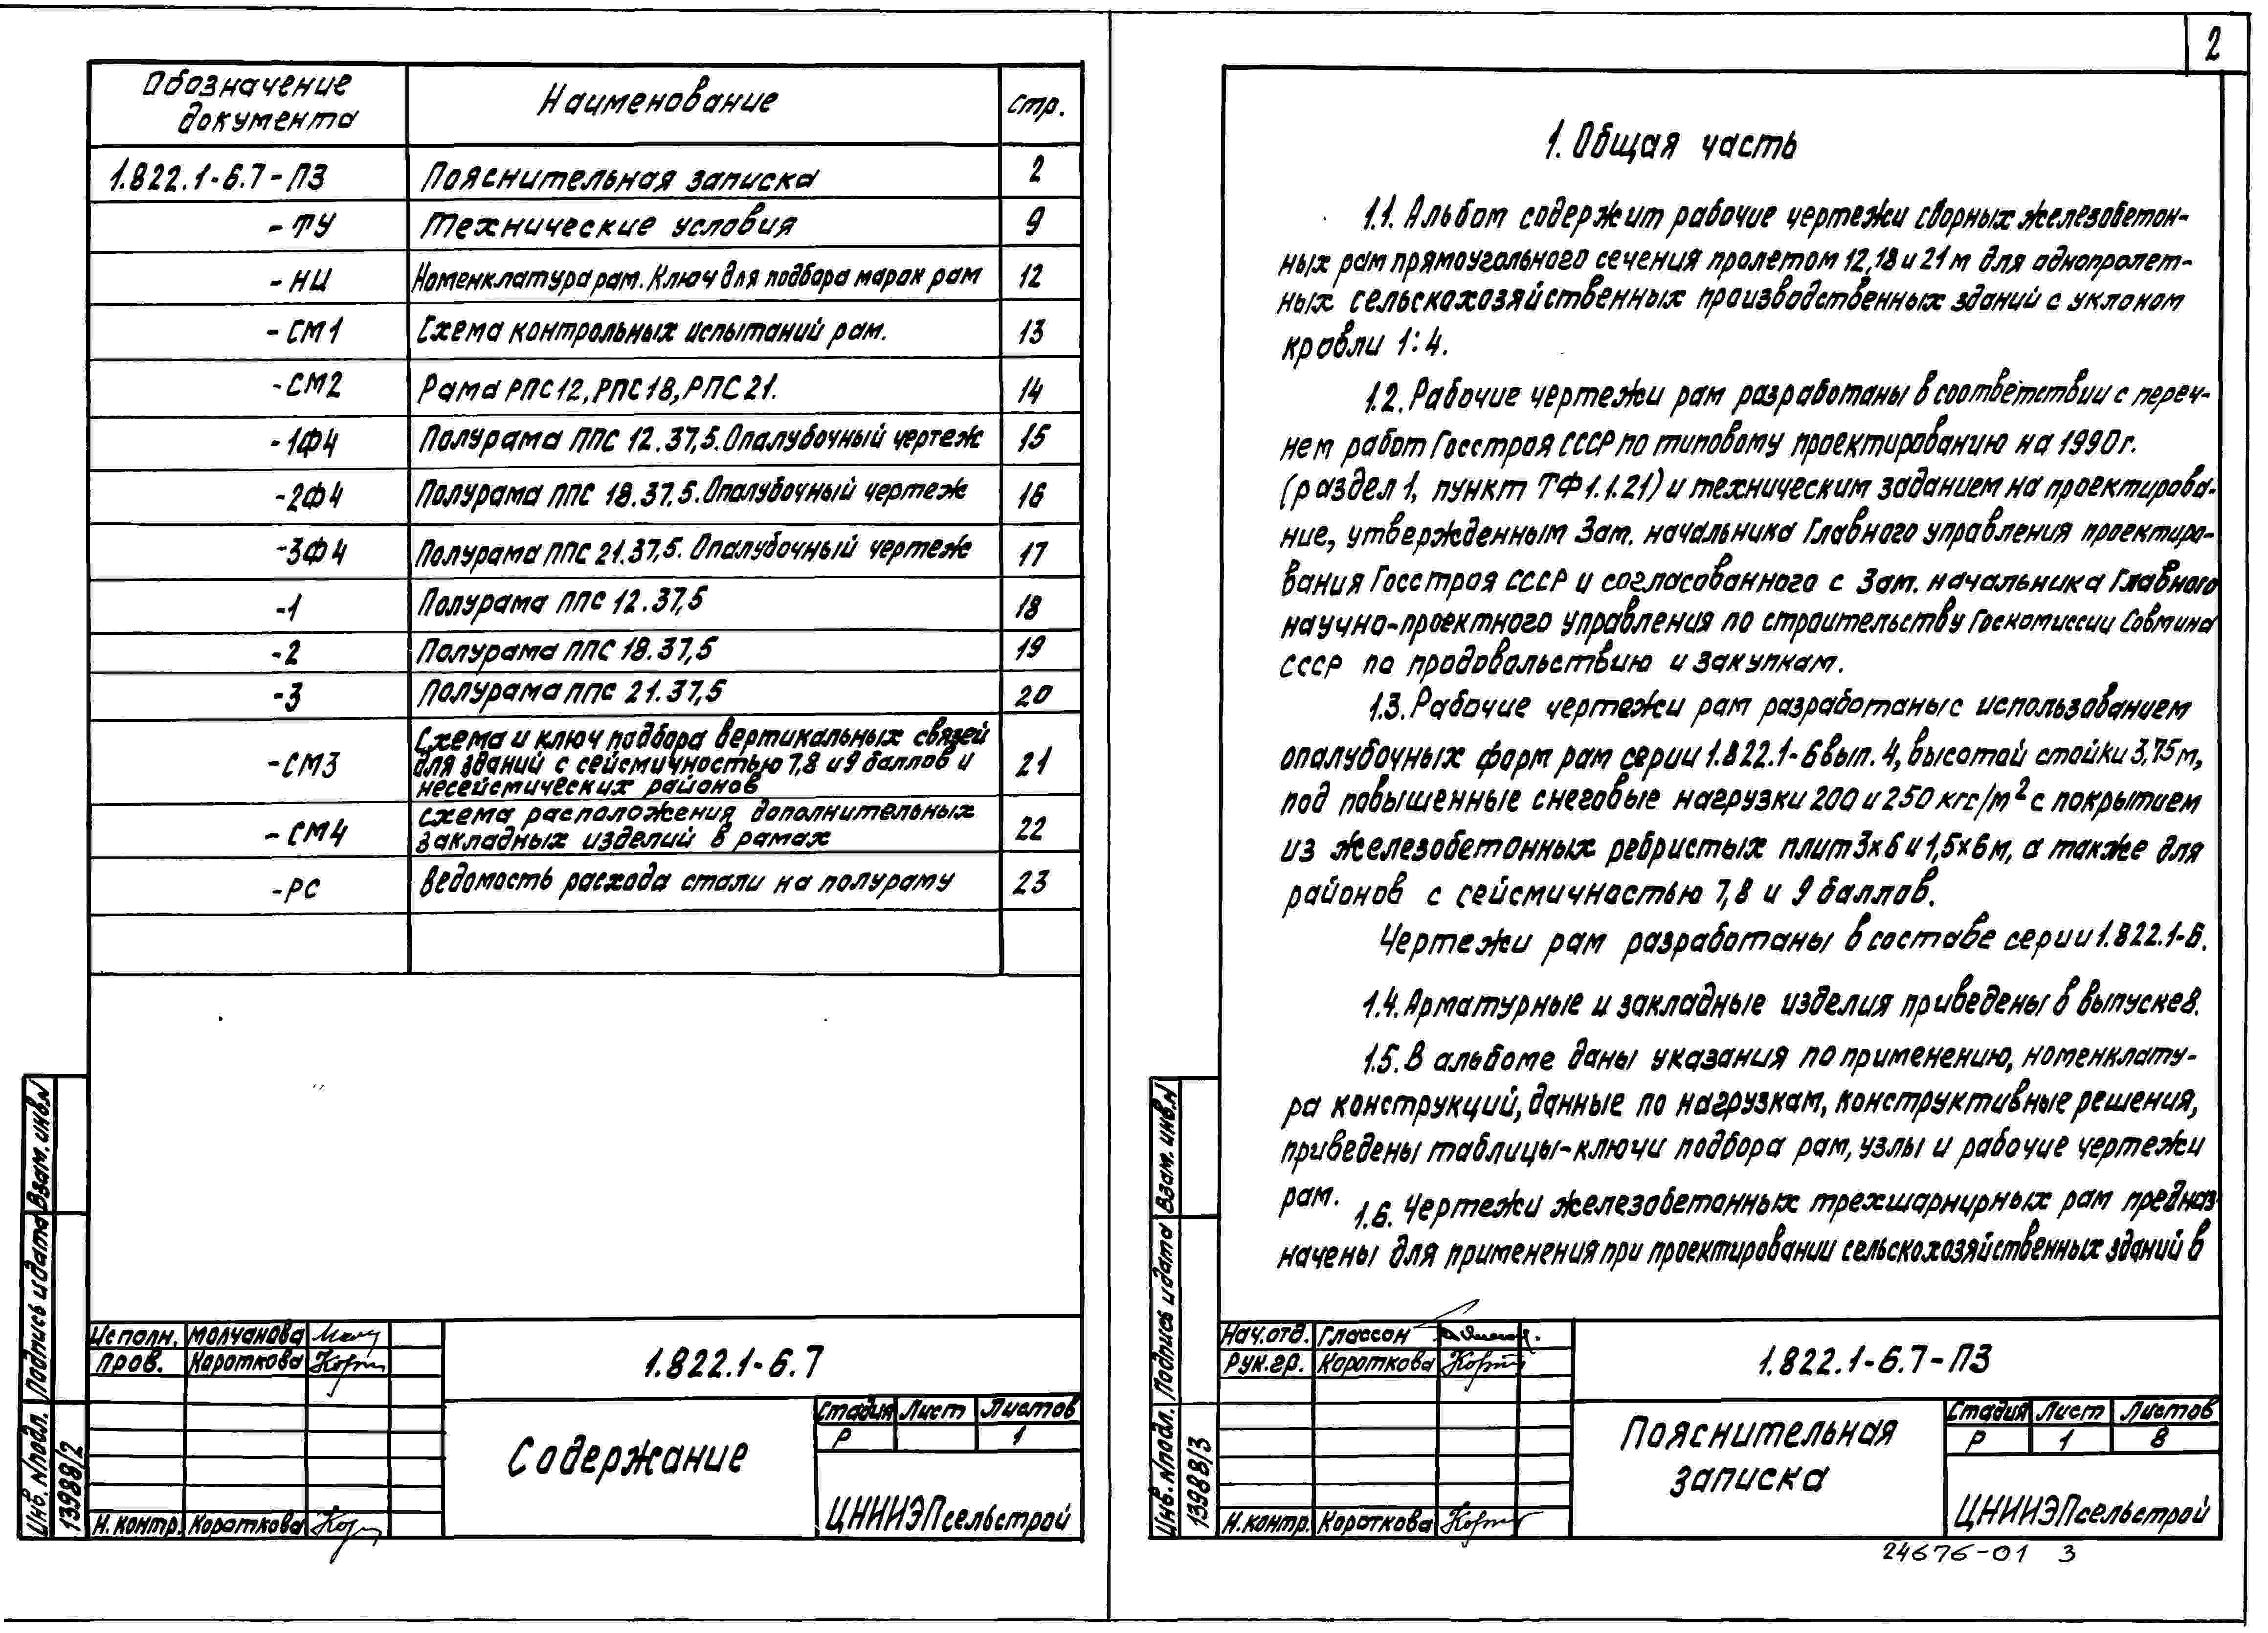 Обозначение документа Наименование стр.
1.822.1-6.7-ПЗ Пояснительная записка 2
-ТУ Технические условия 9
-НИ Номенклатура рам. Ключ для подбора марок рам 12
-СМ1 Схема контрольных испытаний рам. 13
-СМ2 Рама РПС12, РПС18, РПС21. 14
-1Ф4 Полурама ППС 12.37,5. Опалубочный чертеж 15
-2Ф4 Полурама ППС 18.37,5. Опалубочный чертеж 16
-3Ф4 Полурама ППС 21.37,5. Опалубочный чертеж 17
-1 Полурама ППС 12.37,5 18
-2 Полурама ППС 18.37,5 19
-3 Полурама ППС 21.37,5 20
-СМ3 Схема и ключ подбора вертикальных связей
для зданий с сейсмичностью 7,8 и 9 баллов и
несейстических районов 21
-СМ4 схема расположения дополнительных
закладных изделий в рамах 22
-РС Ведомость расхода стали на полураму 23
Взам. инв.N
Подпись и дата
Инв. N подл.
13988/2
Исполн. Молчанова
Пров. Короткова
Н. контр. Короткова
1.822.1-6.7
Содержание
Стадия Лист Листов
Р 1
ЦНИИЭПсельстрой
2
1. Общая часть
1.1. Альбом содержит рабочие чертежи сборных железобетон-
ных рам прямоугольного сечения пролетом 12, 18 и 21 м для однопролет-
ных сельскохозяйственных производственных зданий с уклоном
кровли 1:4.
1.2. Рабочие чертежи рам разработаны в соответствии с переч-
нем работ Госстроя СССР по типовому проектированию на 1990 г.
(раздел 1, пункт ТФ 1.1.21) и техническим заданием на проектирова-
ние, утвержденным Зам. начальника Главного управления проектиро-
вания Госстроя СССР и согласованного с Зам. начальника Главного
научно-проектного управления по строительству Госкомиссии Совмина
СССР по продовольствию и закупкам.
1.3. Рабочие чертежи рам разработаны с использованием
опалубочных форм рам серии 1.822.1-6 вып. 4, высотой стойки 3,75 м,
под повышенные снеговые нагрузки 200 и 250 кгс/м² с покрытием
из железобетонных ребристых плит 3×6 и 1,5×6 м, а также для
районов с сейсмичностью 7,8 и 9 баллов.
Чертежи рам разработаны в составе серии 1.822.1-6.
1.4. Арматурные и закладные изделия приведены в выпуске 8.
1.5. В альбоме даны указания по применению, номенклату-
ра конструкций, данные по нагрузкам, конструктивные решения,
приведены таблицы-ключи подбора рам, узлы и рабочие чертежи
рам.
1.6. Чертежи железобетонных трехшарнирных рам предназ-
начены для применения при проектировании сельскохозяйственных зданий в
Взам. инв.N
Подпись и дата
Инв. N подл.
13988/3
Нач. отд. Глассон
Рук. гр. Короткова
Н. контр. Короткова
1.822.1-6.7-ПЗ
Пояснительная
записка
Стадия Лист Листов
Р 1 8
ЦНИИЭПсельстрой
24676-01 3